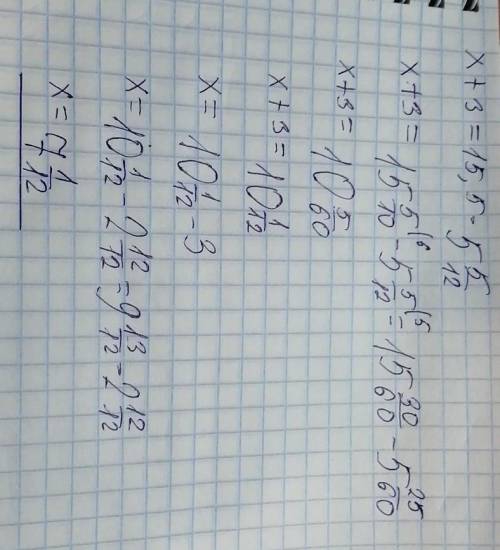 x + 3 = 15,5 - 5 5/12
x + 3 = 15 5/10 (6 - 5 5/12 (5 = 15 30/60 - 5 25/60
x + 3 = 10 5/60
x + 3 = 10 1/12
x = 10 1/12 - 3
x = 10 1/12 - 2 12/12 = 9 13/12 - 2 12/12
x = 7 1/12